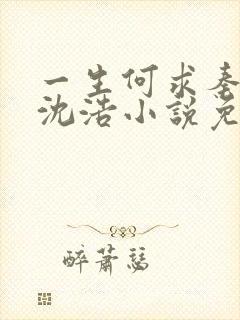 一生何求秦
沈浩小说免
醉萧瑟